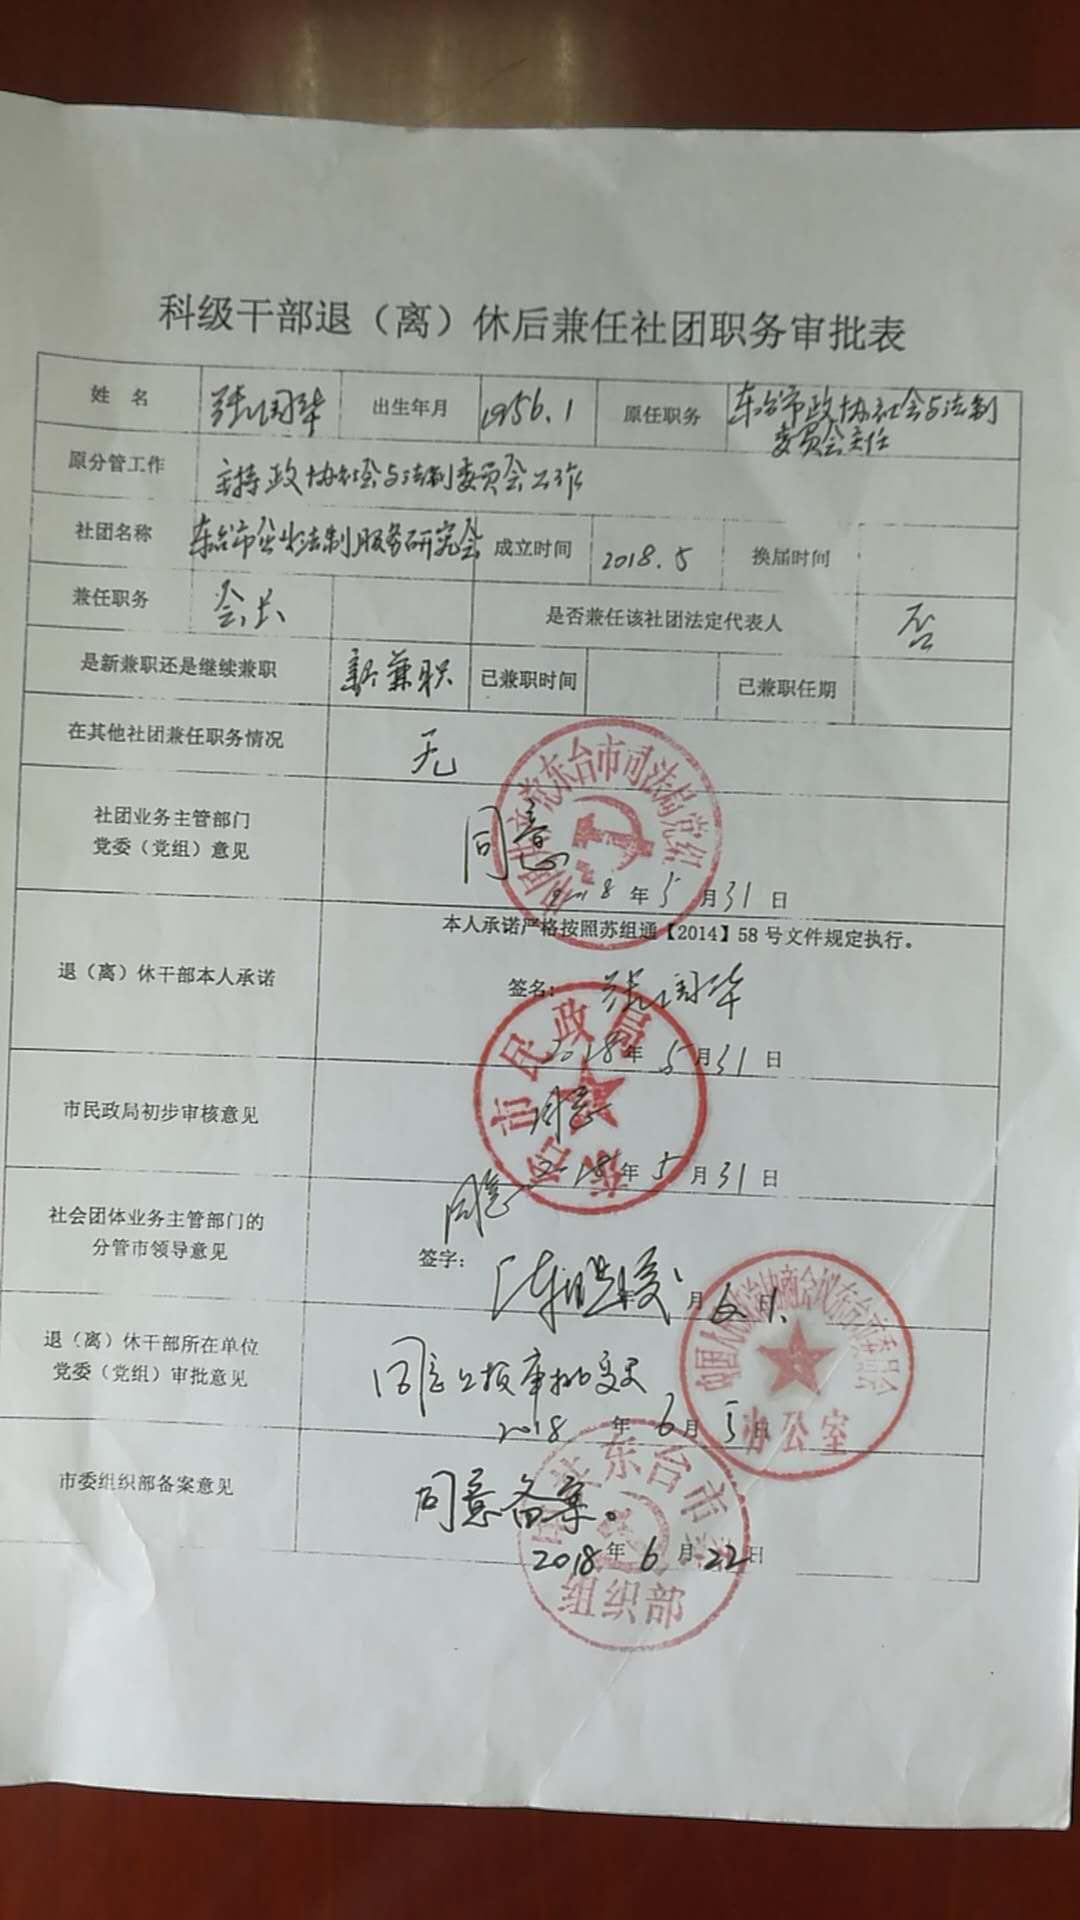 科级干部退（离）休后兼任社团职务审批表
姓 名 张国华 出生年月 1956.1 原任职务 东台市政协社会与法制
委员会主任
原分管工作 主持政协社会与法制委员会工作
社团名称 东台市企业法制服务研究会 成立时间 2018.5 换届时间
兼任职务 会长 是否兼任该社团法定代表人 否
是新兼职还是继续兼职 新兼职 已兼职时间 已兼职任期
在其他社团兼任职务情况 无
社团业务主管部门
党委（党组）意见
同意
2018年5月31日
东台市司法局党组
本人承诺严格按照苏组通【2014】58号文件规定执行。
退（离）休干部本人承诺
签名：张国华
2018年5月31日
东台市民政局
市民政局初步审核意见
同意
2018年5月31日
社会团体业务主管部门的
分管市领导意见
同意
签字：
月6日1
退（离）休干部所在单位
党委（党组）审批意见
同意上报审批
2018年6月5日
中国人民政治协商会议东台市委员会
办公室
市委组织部备案意见
同意备案。
2018年6月22日
中共东台市委
组织部